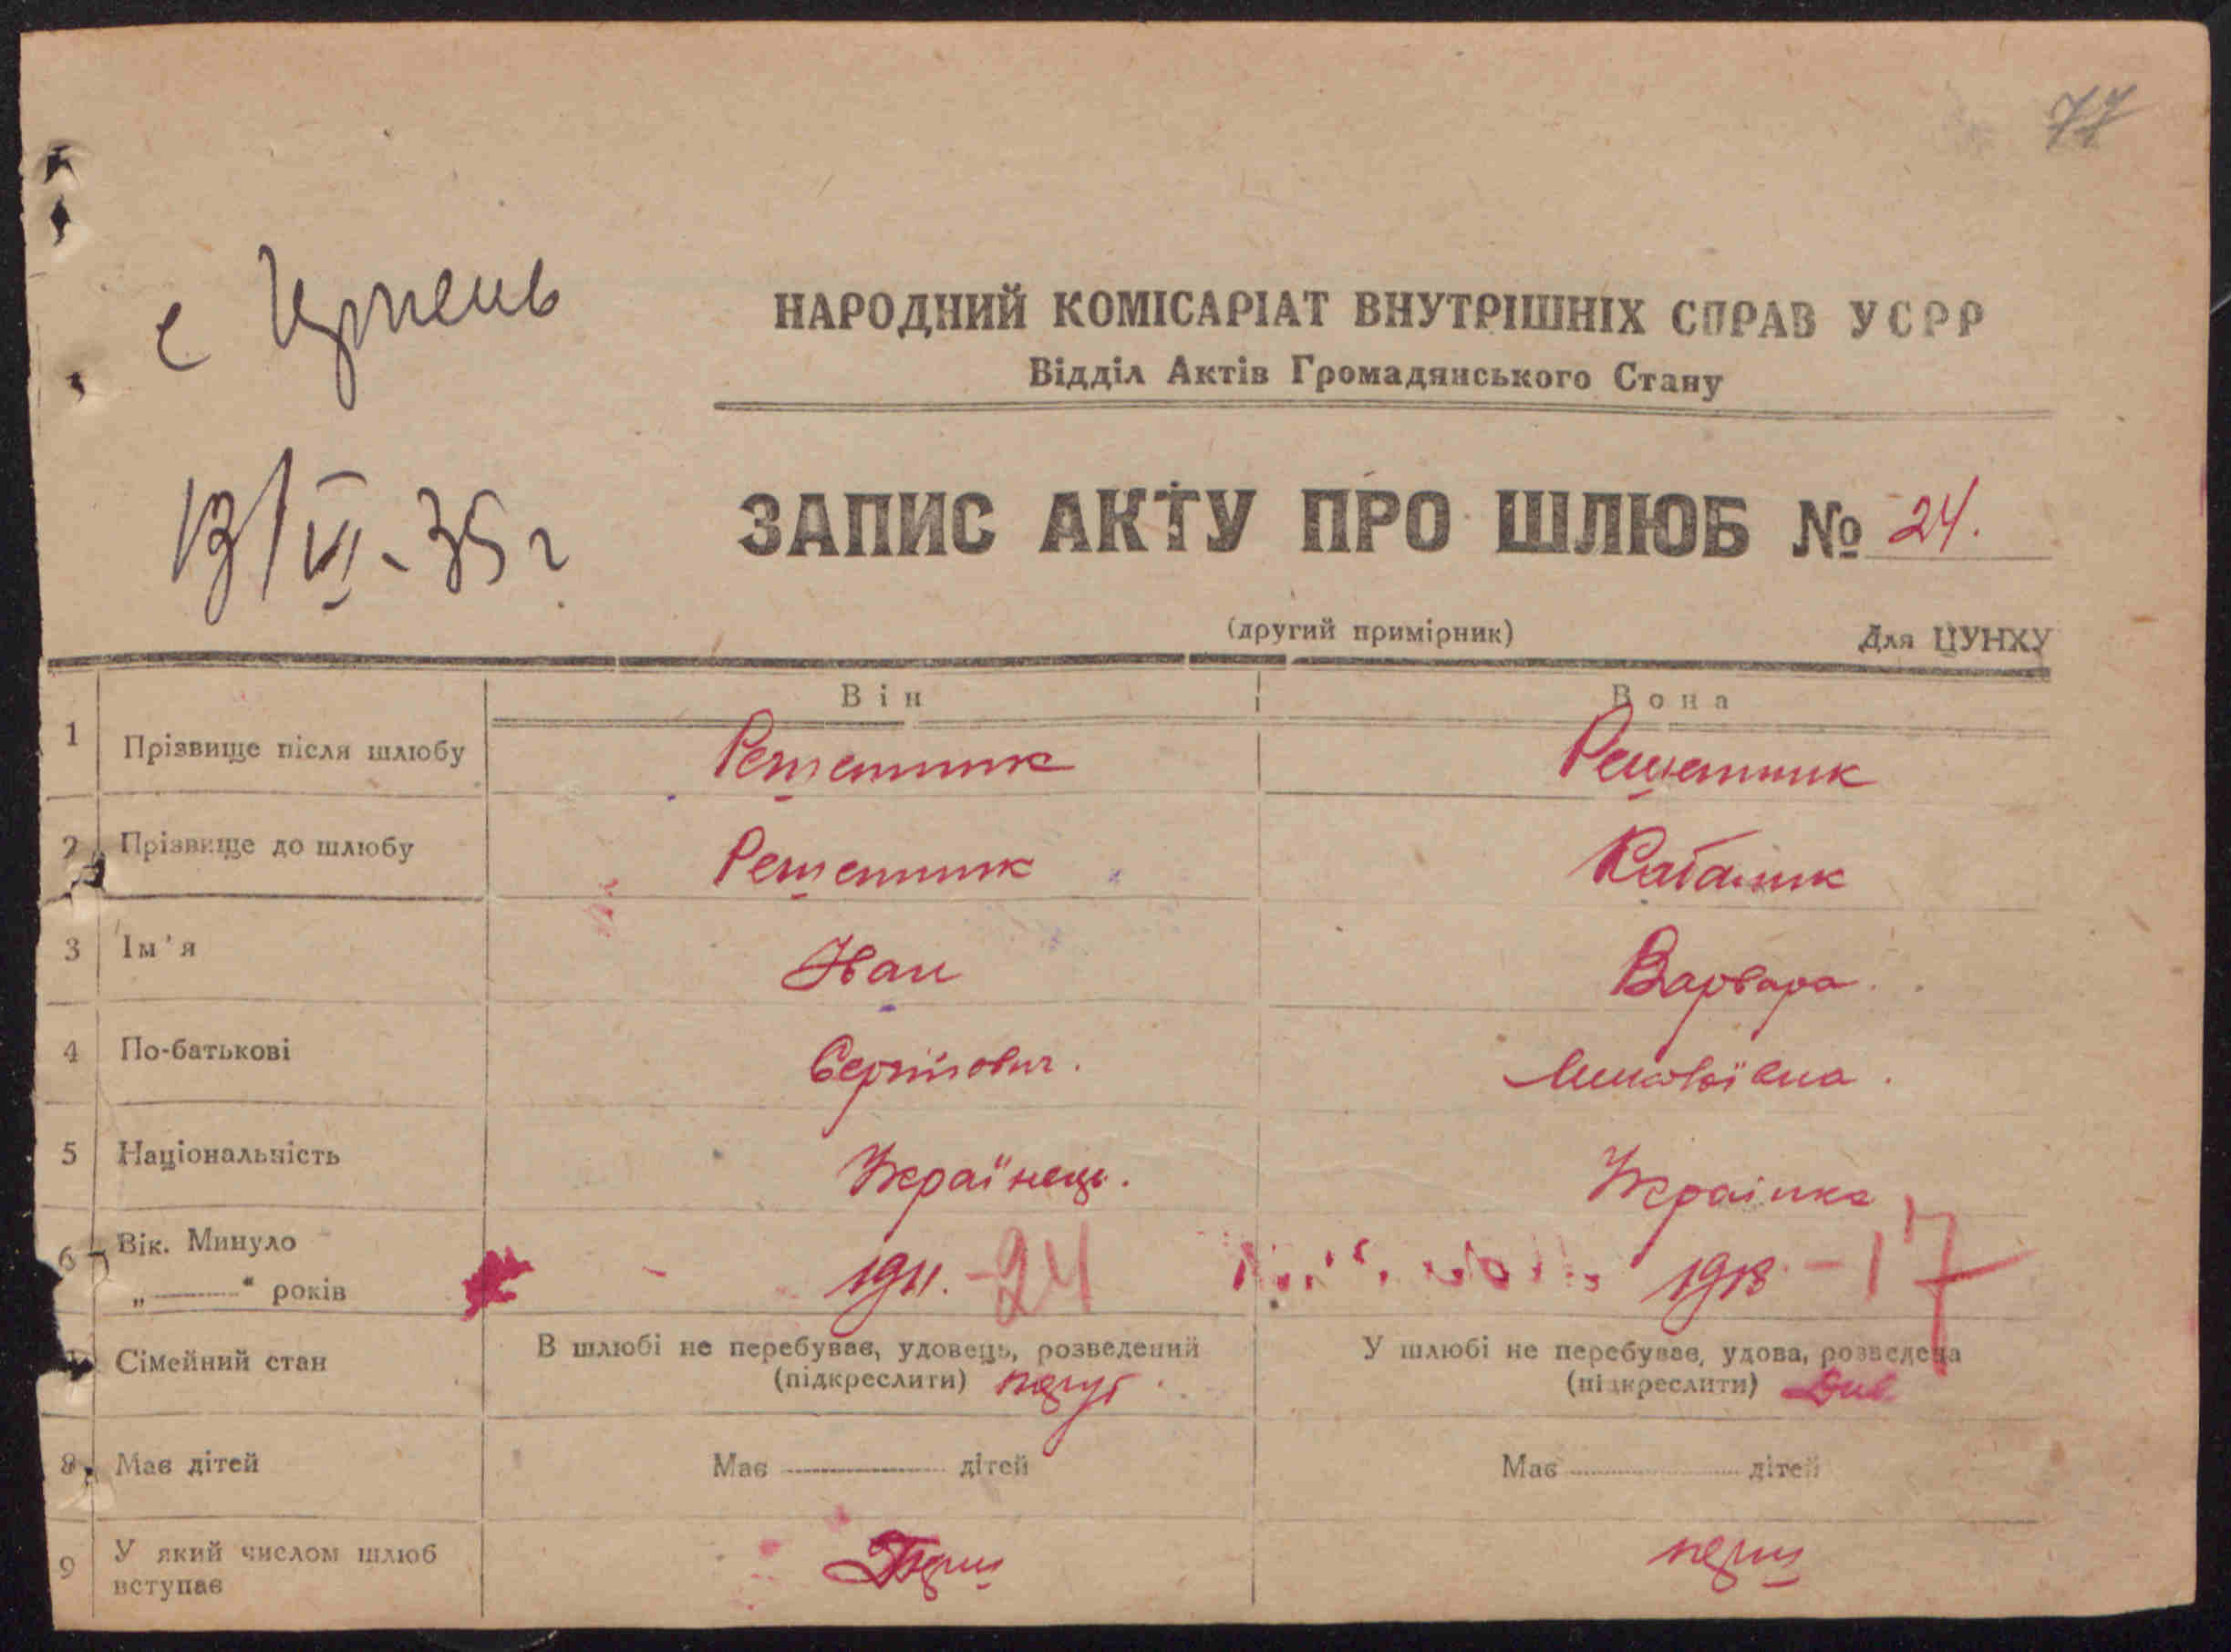 77
с Ірпень
НАРОДНИЙ КОМІСАРІАТ ВНУТРІШНІХ СПРАВ УСРР
Відділ Актів Громадянського Стану
13/VI - 35 г
ЗАПИС АКТУ ПРО ШЛЮБ № 24.
(другий примірник) Для ЦУНХУ
Він Вона
1 Прізвище після шлюбу Решетник Решетник
2 Прізвище до шлюбу Решетник
3 Ім'я Иван Варвара.
4 По-батькові Сергійович.
5 Національність Українець. Украінка
6 Вік. Минуло
„ " років 1911. - 24 1918 - 17
Сімейний стан В шлюбі не перебуває, удовець, розведений У шлюбі не перебуває, удова, розведена
(підкреслити) (підкреслити)
8 Має дітей Має дітей Має дітей
9 У який числом шлюб
вступає Перш перш